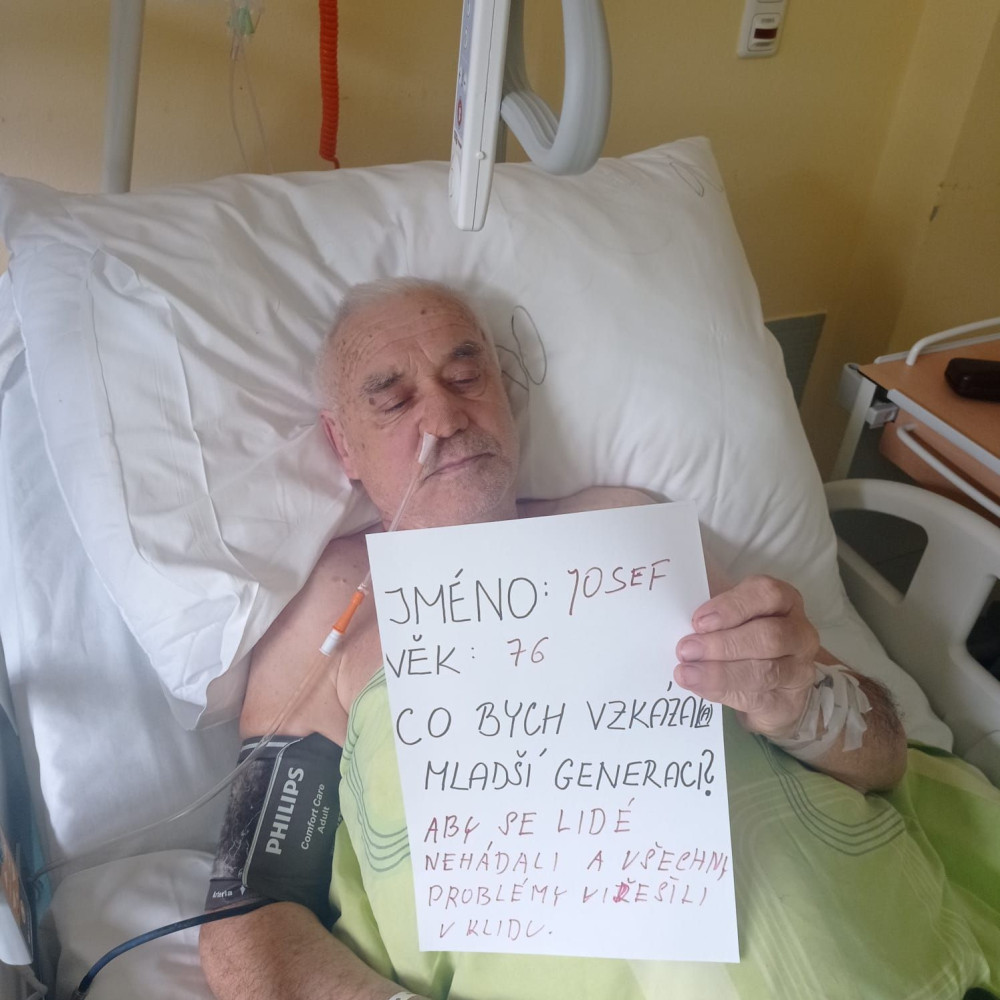 JMÉNO: JOSEF
VĚK: 76
CO BYCH VZKÁZAL(A)
MLADŠÍ GENERACI?
ABY SE LIDÉ
NEHÁDALI A VŠECHNY
PROBLÉMY VIŘEŠÍLI
V KLIDU.
PHILIPS
Comfort Care
Adult